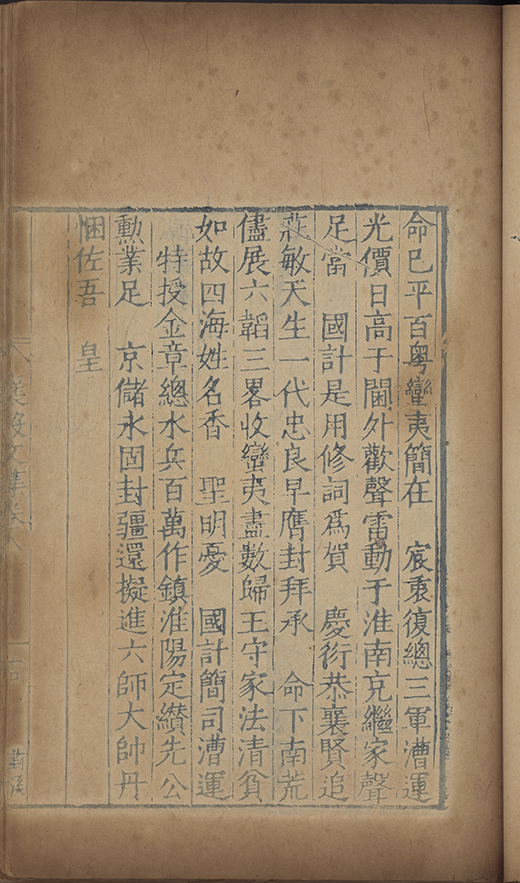 命已平百粤蠻夷簡在　宸衷復總三軍漕運
光價日高于閫外歡聲雷動于淮南克繼家聲
足當　國計是用修詞爲賀　慶衍恭襄賢追
莊敏天生一代忠良早膺封拜承　命下南荒
儘展六韜三畧收蠻夷盡數歸王守家法清貧
如故四海姓名香　聖明憂　國計簡司漕運
特授金章總水兵百萬作鎮淮陽定纉先公
勲業足　京儲永固封疆還擬進六師大帥丹
悃佐吾　皇
文集卷